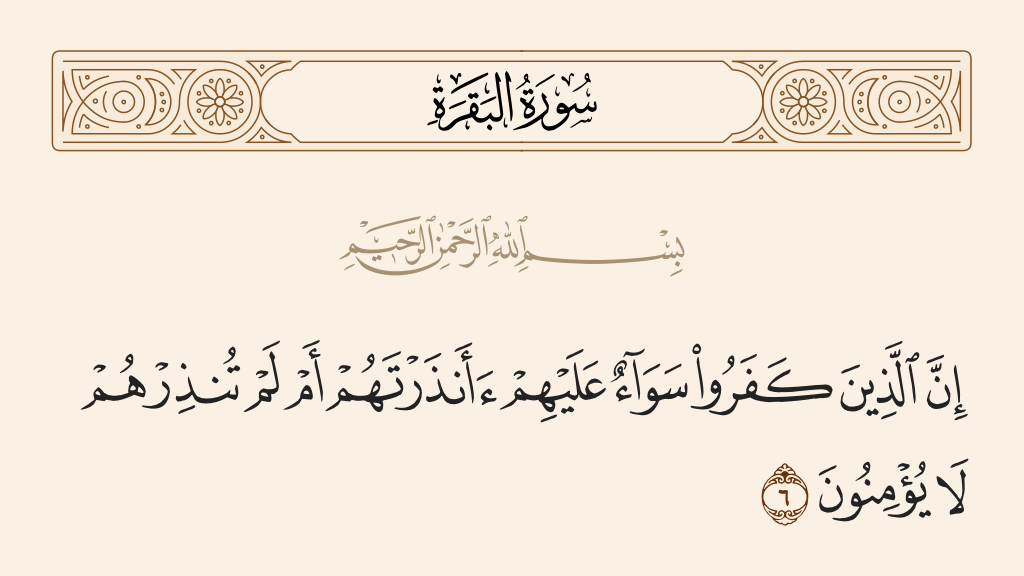 سُورَةُ البَقَرَةِ
بِسْمِ ٱللَّهِ ٱلرَّحْمَٰنِ ٱلرَّحِيمِ
إِنَّ ٱلَّذِينَ كَفَرُوا۟ سَوَآءٌ عَلَيْهِمْ ءَأَنذَرْتَهُمْ أَمْ لَمْ تُنذِرْهُمْ
لَا يُؤْمِنُونَ ٦